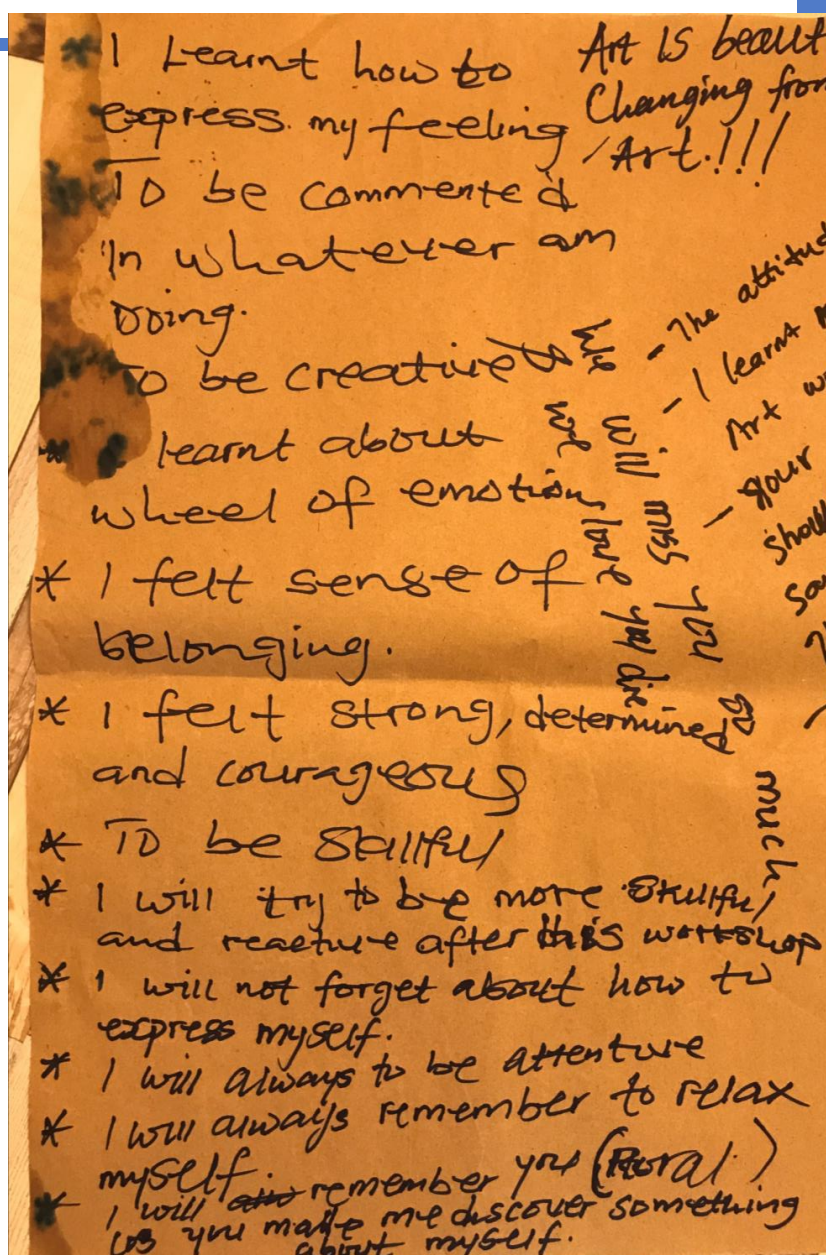 * I Learnt how to
express my feeling
To be commented
In whatever am
Doing.
To be creative
* learnt about
wheel of emotions
* I felt sense of
belonging.
* I felt strong, determined
and courageous
* To be skillful
* I will try to be more skillful
and reactive after this workshop
* I will not forget about how to
express myself.
* I will always to be attentive
* I will always remember to relax
myself.
* I will remember you
us you make me discover something
about myself.
Art Is beaut
Changing from
Art.!!!
We will miss you so much
we love you
- The attitud
- I learnt
Art
- your